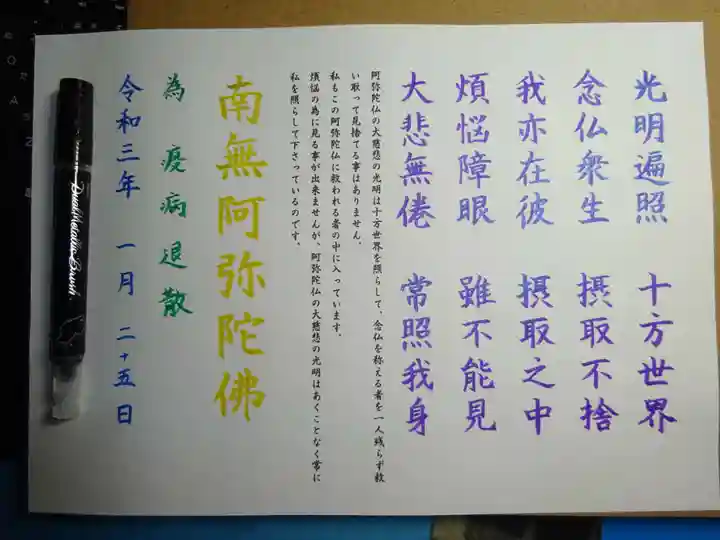 光明遍照 十方世界
念仏衆生 摂取不捨
我亦在彼 摂取之中
煩悩障眼 雖不能見
大悲無倦 常照我身
阿弥陀仏の大慈悲の光明は十方世界を照らして、念仏を称える者を一人残らず救
い取って見捨てる事はありません。
私もこの阿弥陀仏に救われる者の中に入っています。
煩悩の為に見る事が出来ませんが、阿弥陀仏の大慈悲の光明はあくことなく常に
私を照らして下さっているのです。
南無阿弥陀佛
為 疫病退散
令和三年 一月 二十五日
Dual Metallic Brush